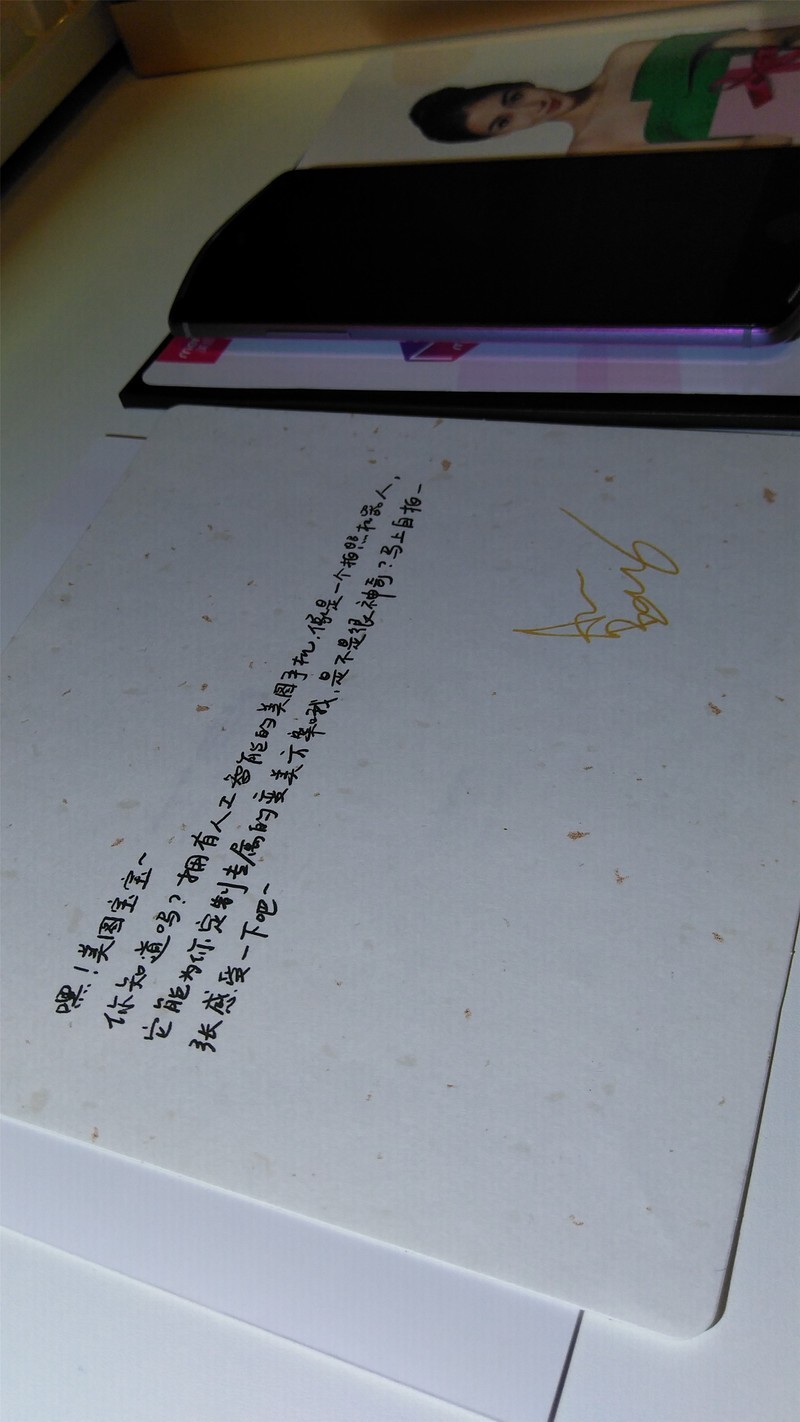 嘿！美图宝宝~
你知道吗？拥有人工智能的美图手机，像是一个拍照机器人，
它能为你定制专属的变美方案哦，是不是很神奇？马上自拍一
张感受一下吧~